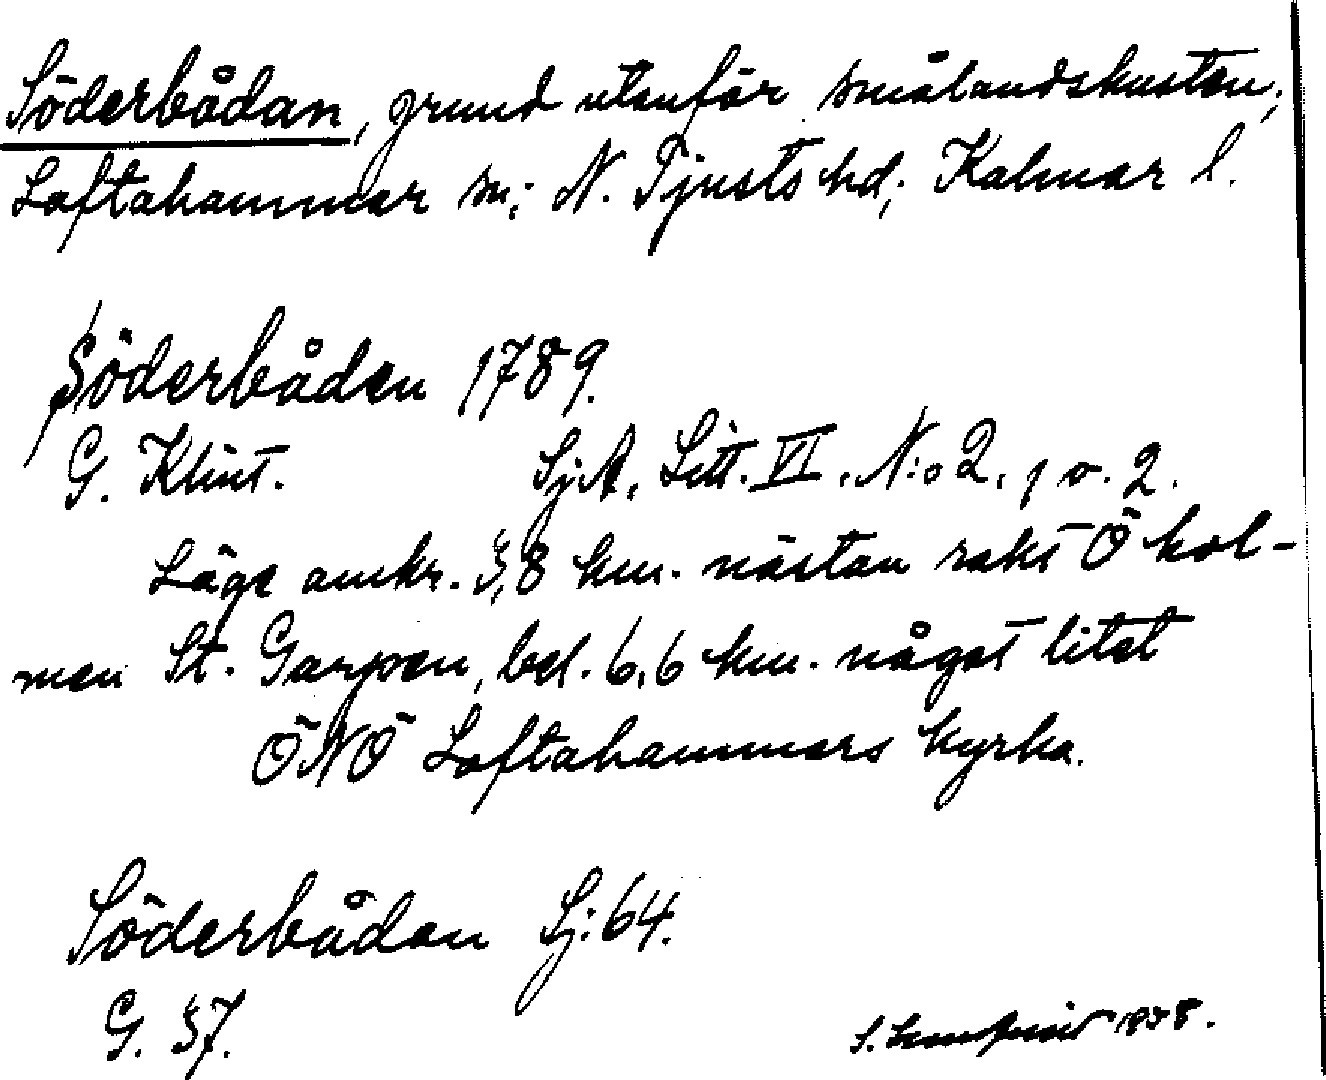 Söderbådan, grund utanför smålandskusten,
Loftahammar sn; N. Tjusts hd, Kalmar l.
Söderbåden 1789.
G. Klint. Sj.A, Litt. VI. N:o 2. 1 o. 2.
Läge omkr. 3,8 km. nästan rakt Ö hol-
men St. Garpen, bel. 6,6 km. något litet
ÖNÖ Loftahammars kyrka.
Söderbådan Sj: 64.
G. 37.
S.